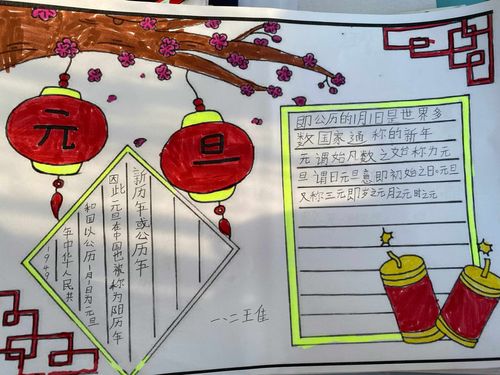 元旦
1949
年中华人民共
和国以公历1月1日为元旦
因此元旦在中国也被称为阳历年
新历年或公历年
即公历的1月1日是世界多
数国家通称的新年
元谓始凡数之始称为元
旦谓日元旦意即初始之日元旦
又称三元即岁之元月之元时之元
一、二王佳